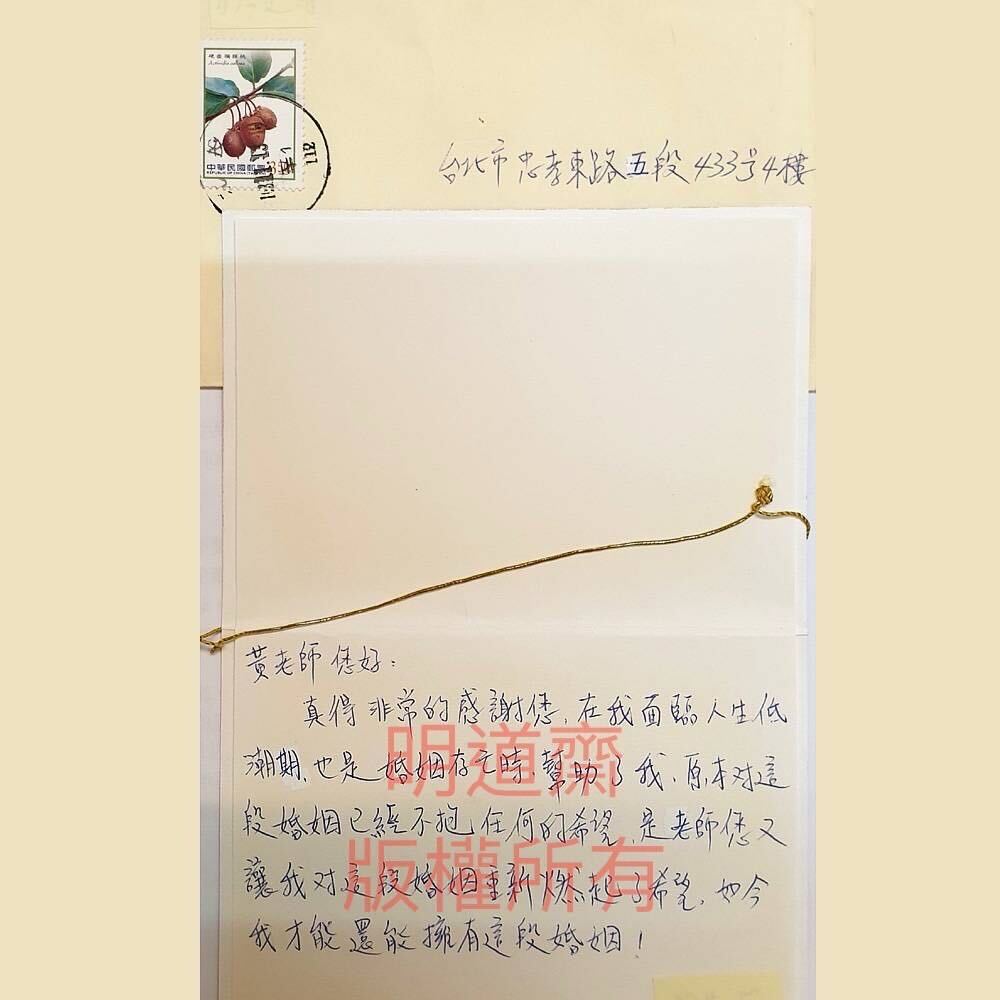 硬齒獼猴桃
Actinidia callosa
中華民國郵票
REPUBLIC OF CHINA (TAIWAN)
台北市忠孝東路五段433号4樓
黃老師您好：
真得非常的感謝您，在我面臨人生低
潮期，也是婚姻存亡時，幫助了我，原本对這
段婚姻已經不抱任何的希望，是老師您又
讓我对這段婚姻重新燃起了希望，如今
我才能還能擁有這段婚姻！
明道齋
版權所有